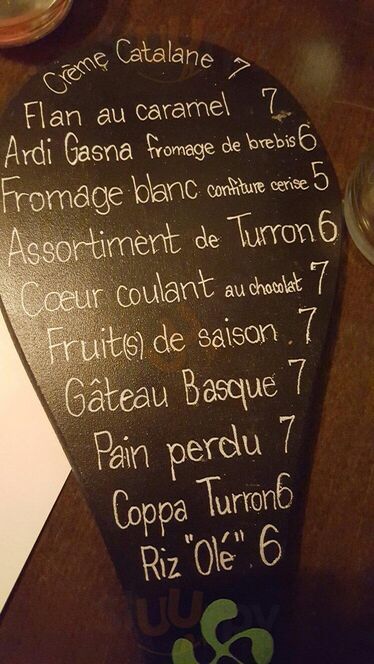 Crème Catalane 7
Flan au caramel 7
Ardi Gasna fromage de brebis 6
Fromage blanc confiture cerise 5
Assortimènt de Turron 6
Cœur coulant au chocolat 7
Fruit(s) de saison 7
Gâteau Basque 7
Pain perdu 7
Coppa Turron 6
Riz "Olé" 6